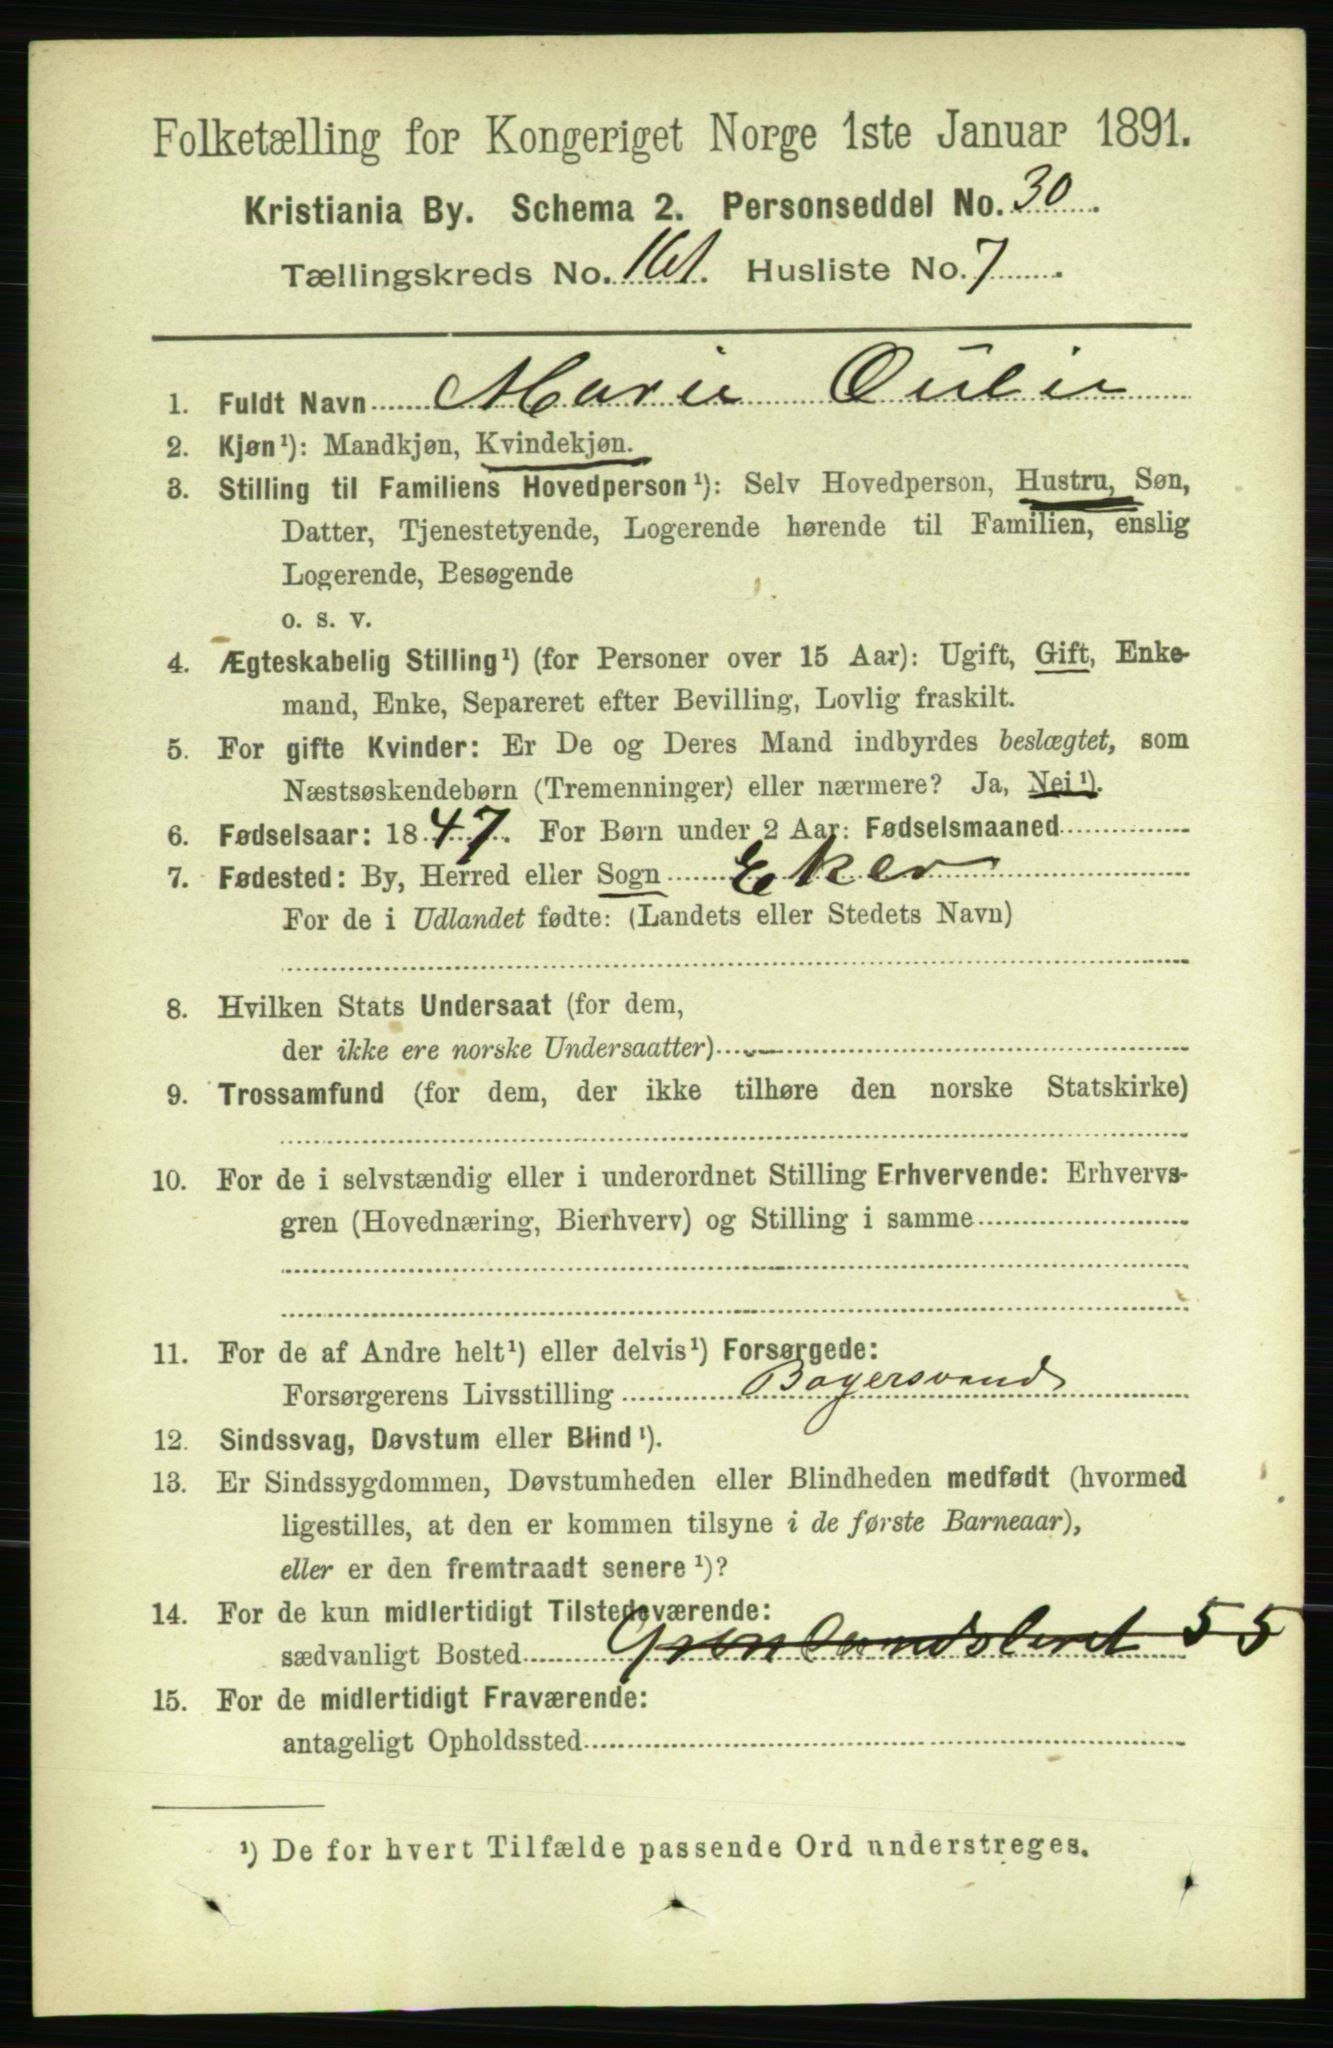 Folketælling for Kongeriget Norge 1ste Januar 1891.
Kristiania By. Schema 2. Personseddel No. 30.
Tællingskreds No. 161. Husliste No. 7.
1. Fuldt Navn Marie
2. Kjøn¹): Mandkjøn, Kvindekjøn.
3. Stilling til Familiens Hovedperson¹): Selv Hovedperson, Hustru, Søn,
Datter, Tjenestetyende, Logerende hørende til Familien, enslig
Logerende, Besøgende
o. s. v.
4. Ægteskabelig Stilling¹) (for Personer over 15 Aar): Ugift, Gift, Enke-
mand, Enke, Separeret efter Bevilling, Lovlig fraskilt.
5. For gifte Kvinder: Er De og Deres Mand indbyrdes beslægtet, som
Næstsøskendebørn (Tremenninger) eller nærmere? Ja, Nei¹).
6. Fødselsaar: 1847. For Børn under 2 Aar: Fødselsmaaned
7. Fødested: By, Herred eller Sogn Eker
For de i Udlandet fødte: (Landets eller Stedets Navn)
8. Hvilken Stats Undersaat (for dem,
der ikke ere norske Undersaatter)
9. Trossamfund (for dem, der ikke tilhøre den norske Statskirke)
10. For de i selvstændig eller i underordnet Stilling Erhvervende: Erhvervs-
gren (Hovednæring, Bierhverv) og Stilling i samme
11. For de af Andre helt¹) eller delvis¹) Forsørgede:
Forsørgerens Livsstilling Bogersvend
12. Sindssvag, Døvstum eller Blind¹).
13. Er Sindssygdommen, Døvstumheden eller Blindheden medfødt (hvormed
ligestilles, at den er kommen tilsyne i de første Barneaar),
eller er den fremtraadt senere¹)?
14. For de kun midlertidigt Tilstedeværende:
sædvanligt Bosted Grønlandsleret 55
15. For de midlertidigt Fraværende:
antageligt Opholdssted
¹) De for hvert Tilfælde passende Ord understreges.